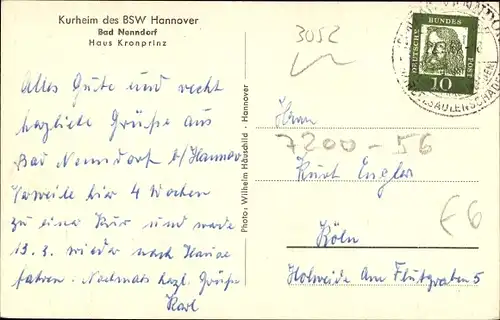 Kurheim des BSW Hannover
Bad Nenndorf
Haus Kronprinz
Alles Gute und recht
herzliche Grüße aus
Bad Nenndorf b/Hannov.
Verweile hier 4 Wochen
zu einer Kur und werde
13.3. wieder nach Hause
fahren. Nochmals herzl. Grüße
Karl
Photo: Wilhelm Häuschild · Hannover
3052
DEUTSCHE BUNDES POST
10
Herrn
7200-56
Kurt Engler
E6
Köln
Holweide Am Flutgraben 5